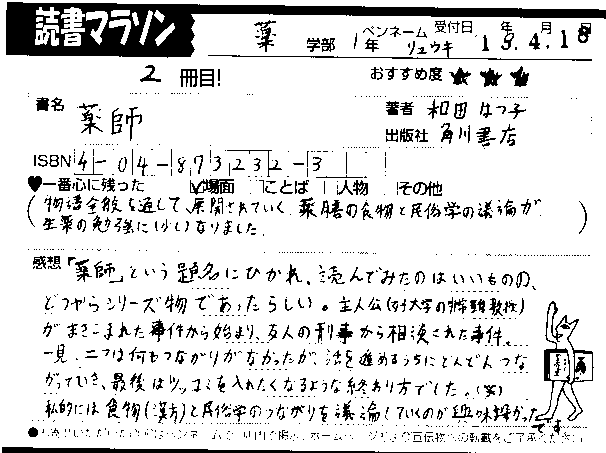 読書マラソン
薬 学部 1年 ペンネーム リュウキ 受付日 19年4月18日
2 冊目! おすすめ度 ★★★
書名 薬師
著者 和田はつ子
出版社 角川書店
ISBN 4-04-873232-3
♥一番心に残った ✓場面 ことば 人物 その他
(物語全般を通して、展開されていく、薬膳の食物と民俗学の議論が
生薬の勉強に少しなりました。)
感想 「薬師」という題名にひかれ、読んでみたのはいいものの、
どうやらシリーズ物であったらしい。主人公(
がまきこまれた事件から始まり、友人の刑事から相談された事件。
一見、二つは何もつながりがなかったが、話を進めるうちにどんどんつな
がっていき、最後はツッコミを入れたくなるような終わり方でした。(笑)
私的には食物(漢方)と民俗学のつながりを議論していくのが興味深かった
です。